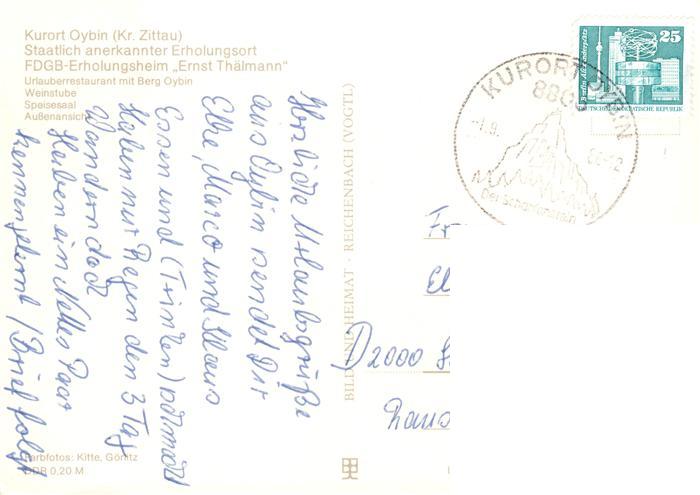 Kurort Oybin (Kr. Zittau)
Staatlich anerkannter Erholungsort
FDGB-Erholungsheim „Ernst Thälmann“
Urlauberrestaurant mit Berg Oybin
Weinstube
Speisesaal
Außenansicht
Herzliche Urlaubsgrüße
aus Oybin sendet Dir
Elke, Marco und Klaus
Essen und (Trinken) normal
Haben nur Regen den 3 Tag
Wandern doch
Haben ein Nettes Paar
kennengelernt / Brief folgt
Farbfotos: Kitte, Görlitz
DDR 0,20 M
BILD UND HEIMAT · REICHENBACH (VOGTL)
25
Berlin, Alexanderplatz
DEUTSCHE DEMOKRATISCHE REPUBLIK
KURORT OYBIN
880
-1.8.
86-12
Der Scharfenstein
Fr
El
D2000